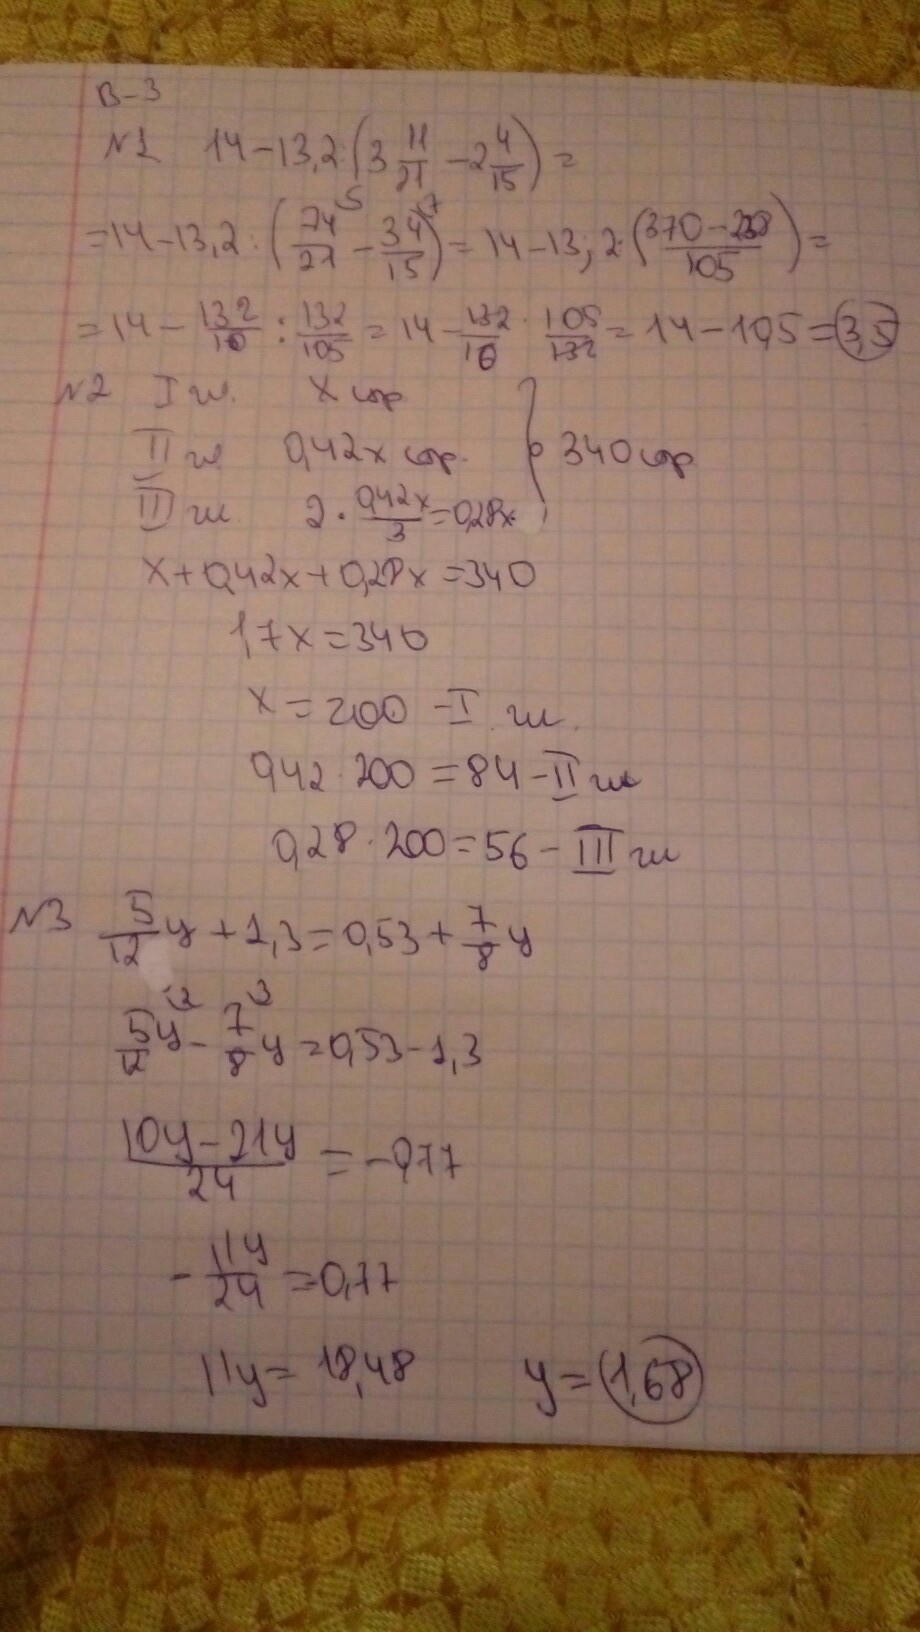 В-3
№1 14-13,2:(3 11/21 - 2 4/15)=
=14-13,2:(74/21 ⁵ - 34/15 ⁷)=14-13,2:(370-238/105)=
=14-132/10:132/105=14-132/10·105/132=14-10,5=3,5
№2 I ш. x стр
II ш 0,42x стр. } 340 стр
III ш. 2·0,42x/3=0,28x
x+0,42x+0,28x=340
1,7x=340
x=200 -I ш.
0,42·200=84-II ш
0,28·200=56-III ш
№3 5/12 y+1,3=0,53+7/8 y
5/12 y ² - 7/8 ³ y=0,53-1,3
10y-21y/24=-0,77
-11y/24=0,77
11y=18,48 y=1,68